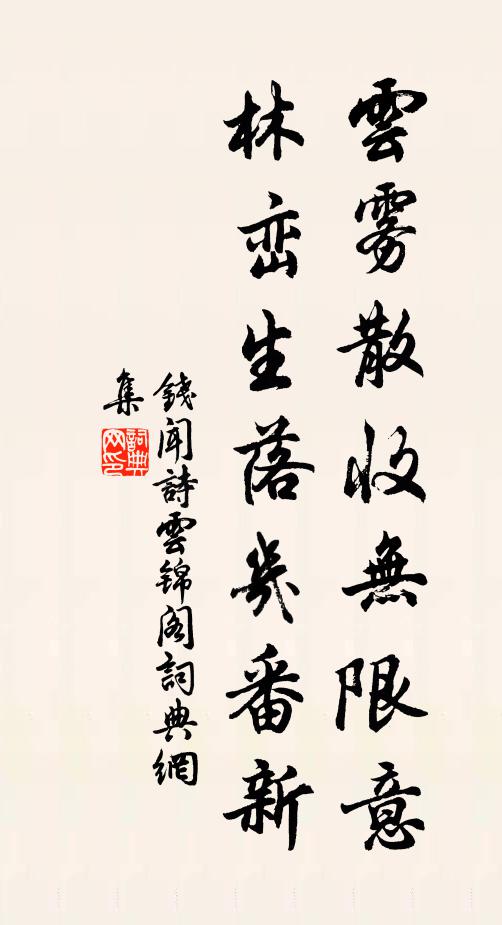 雲霧散收無限意
林峦生落幾番新
錢聞詩雲錦阁詞典網
集
詞典
网印